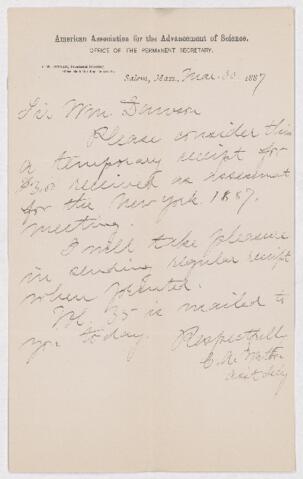 American Association for the Advancement of Science.
OFFICE OF THE PERMANENT SECRETARY.
Salem, Mass. Mar. 30. 1887
Sir Wm Dawson
Please consider this
a temporary receipt for
received as assessment
for the New York 1887.
meeting.
I will take pleasure
in sending regular receipt
when printed.
Vol. 35 is mailed to
you today. Respectfully
Asst Secy